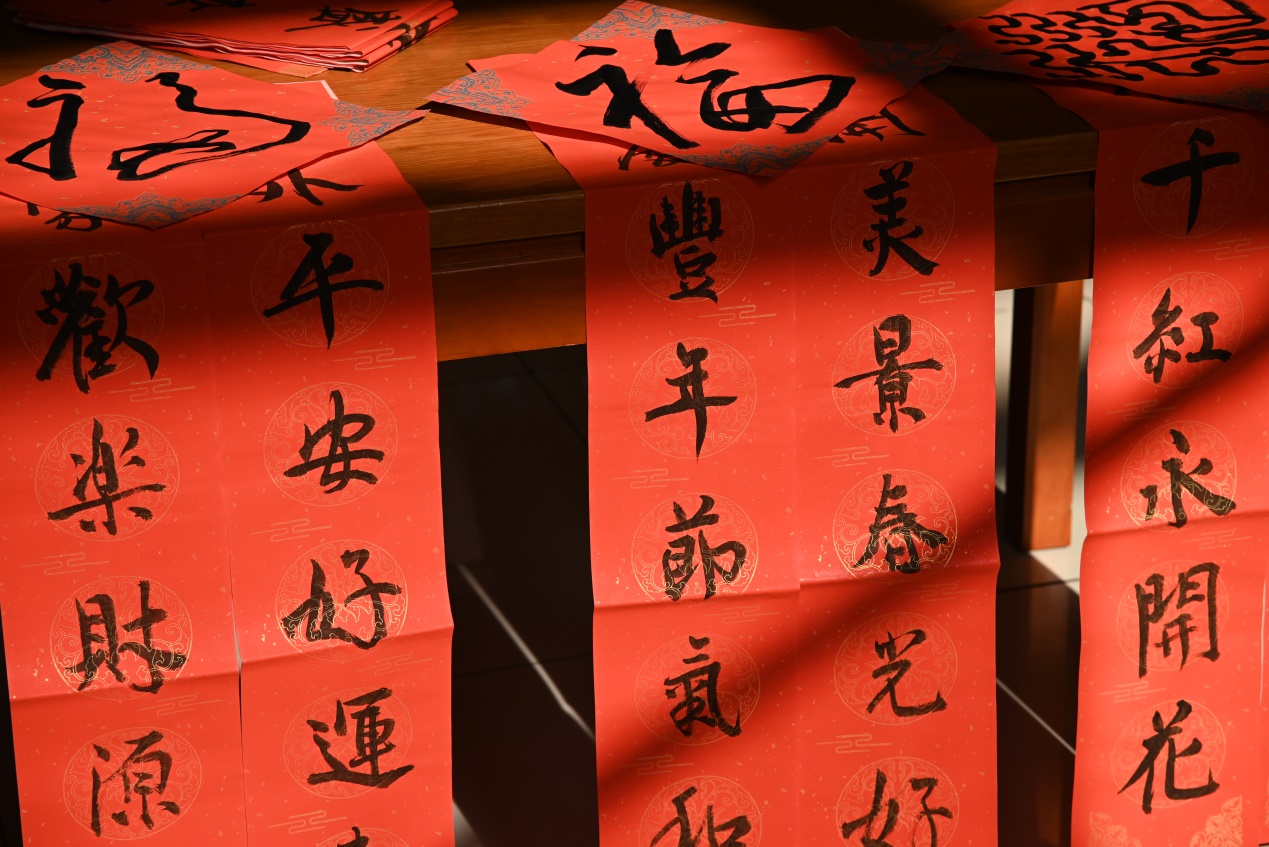 福
福
平安好運
歡楽財源
美景春光好
豐年節氣和
千紅永開花